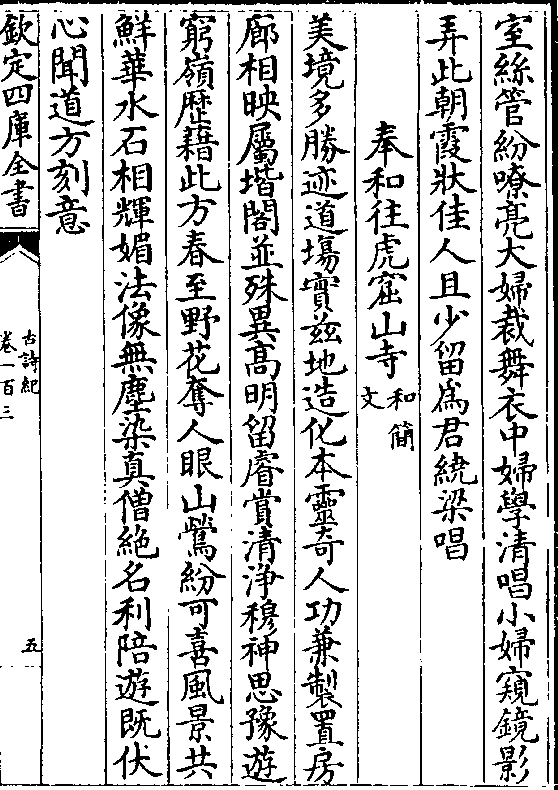 室絲管紛嘹亮大婦裁舞衣中婦學清唱小婦窺鏡影
弄此朝霞狀佳人且少留為君繞梁唱
奉和往虎窟山寺和簡文
美境多勝迹道場實兹地造化本靈奇人功兼製置房
廊相映屬堦閣並殊異高明留睿賞清浄穆神思豫遊
窮嶺歴藉此方春至野花奪人眼山鶯紛可喜風景共
鮮華水石相輝媚法像無塵染真僧絶名利陪遊既伏
心聞道方刻意
欽定四庫全書
古詩紀
卷一百三
五